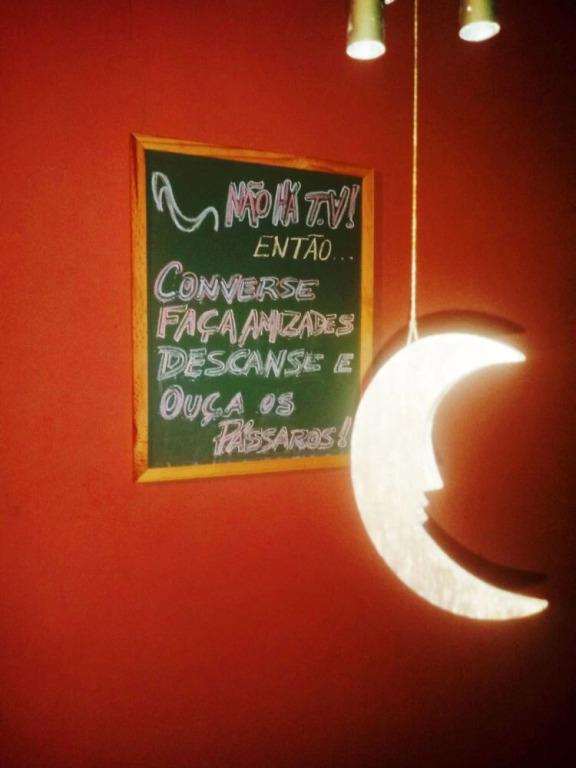 NÃO HÁ T.V!
ENTÃO...
CONVERSE
FAÇA AMIZADES
DESCANSE E
OUÇA OS
PÁSSAROS!